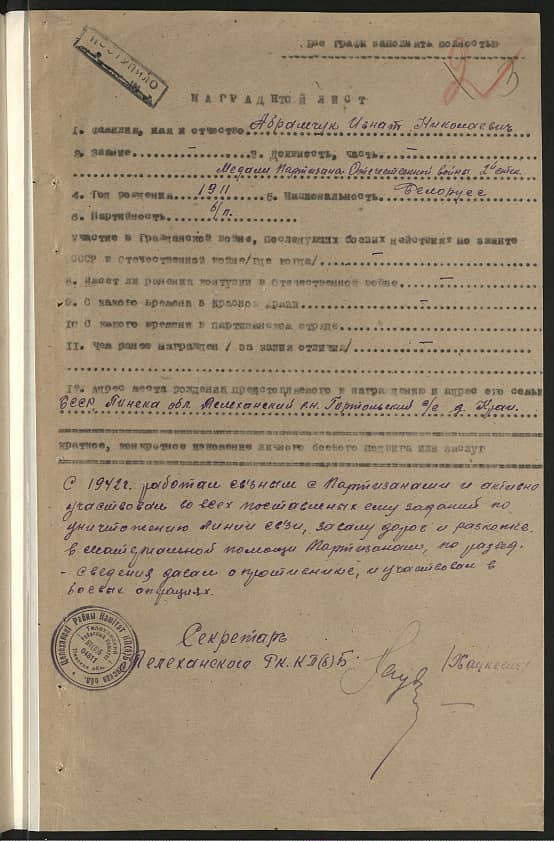 ПОСТУПИЛО
Все графы заполнять полностью
НАГРАДНОЙ ЛИСТ
1. Фамилия, имя и отчество Абрамчук Игнат Николаевич
2. Звание - 3. Должность, часть -
Медали Партизана Отечественной войны 2й степ.
4. Год рождения 1911 5. Национальность Белорусс
6. Партийность б/п.
участие в Гражданской войне, последующих боевых действиях по защите
СССР и отечественной войне/где когда/ -
8. Имеет ли ранения контузии в отечественной войне -
9. С какого времени в Красной армии -
10 С какого времени в партизанском отряде -
11. Чем ранее награжден / за какия отличия/ -
12. Адрес места рождения представляемого к награждению и адрес его семьи
БССР, Пинска обл. Телеханский р.н. Гортольский с/с д. Край.
краткое, конкретное изложение личного боевого подвига или заслуг
С 1942г. работал связным с Партизанами и активно
участвовал во всех поставленых ему заданий по
уничтожению линии связи, завалу дорог и раскопке
в материальной помощи Партизанам, по развед.
- сведения давал о противнике, и участвовал в
боевых операциях.
Секретарь
Телеханского Рк. КП(б)Б